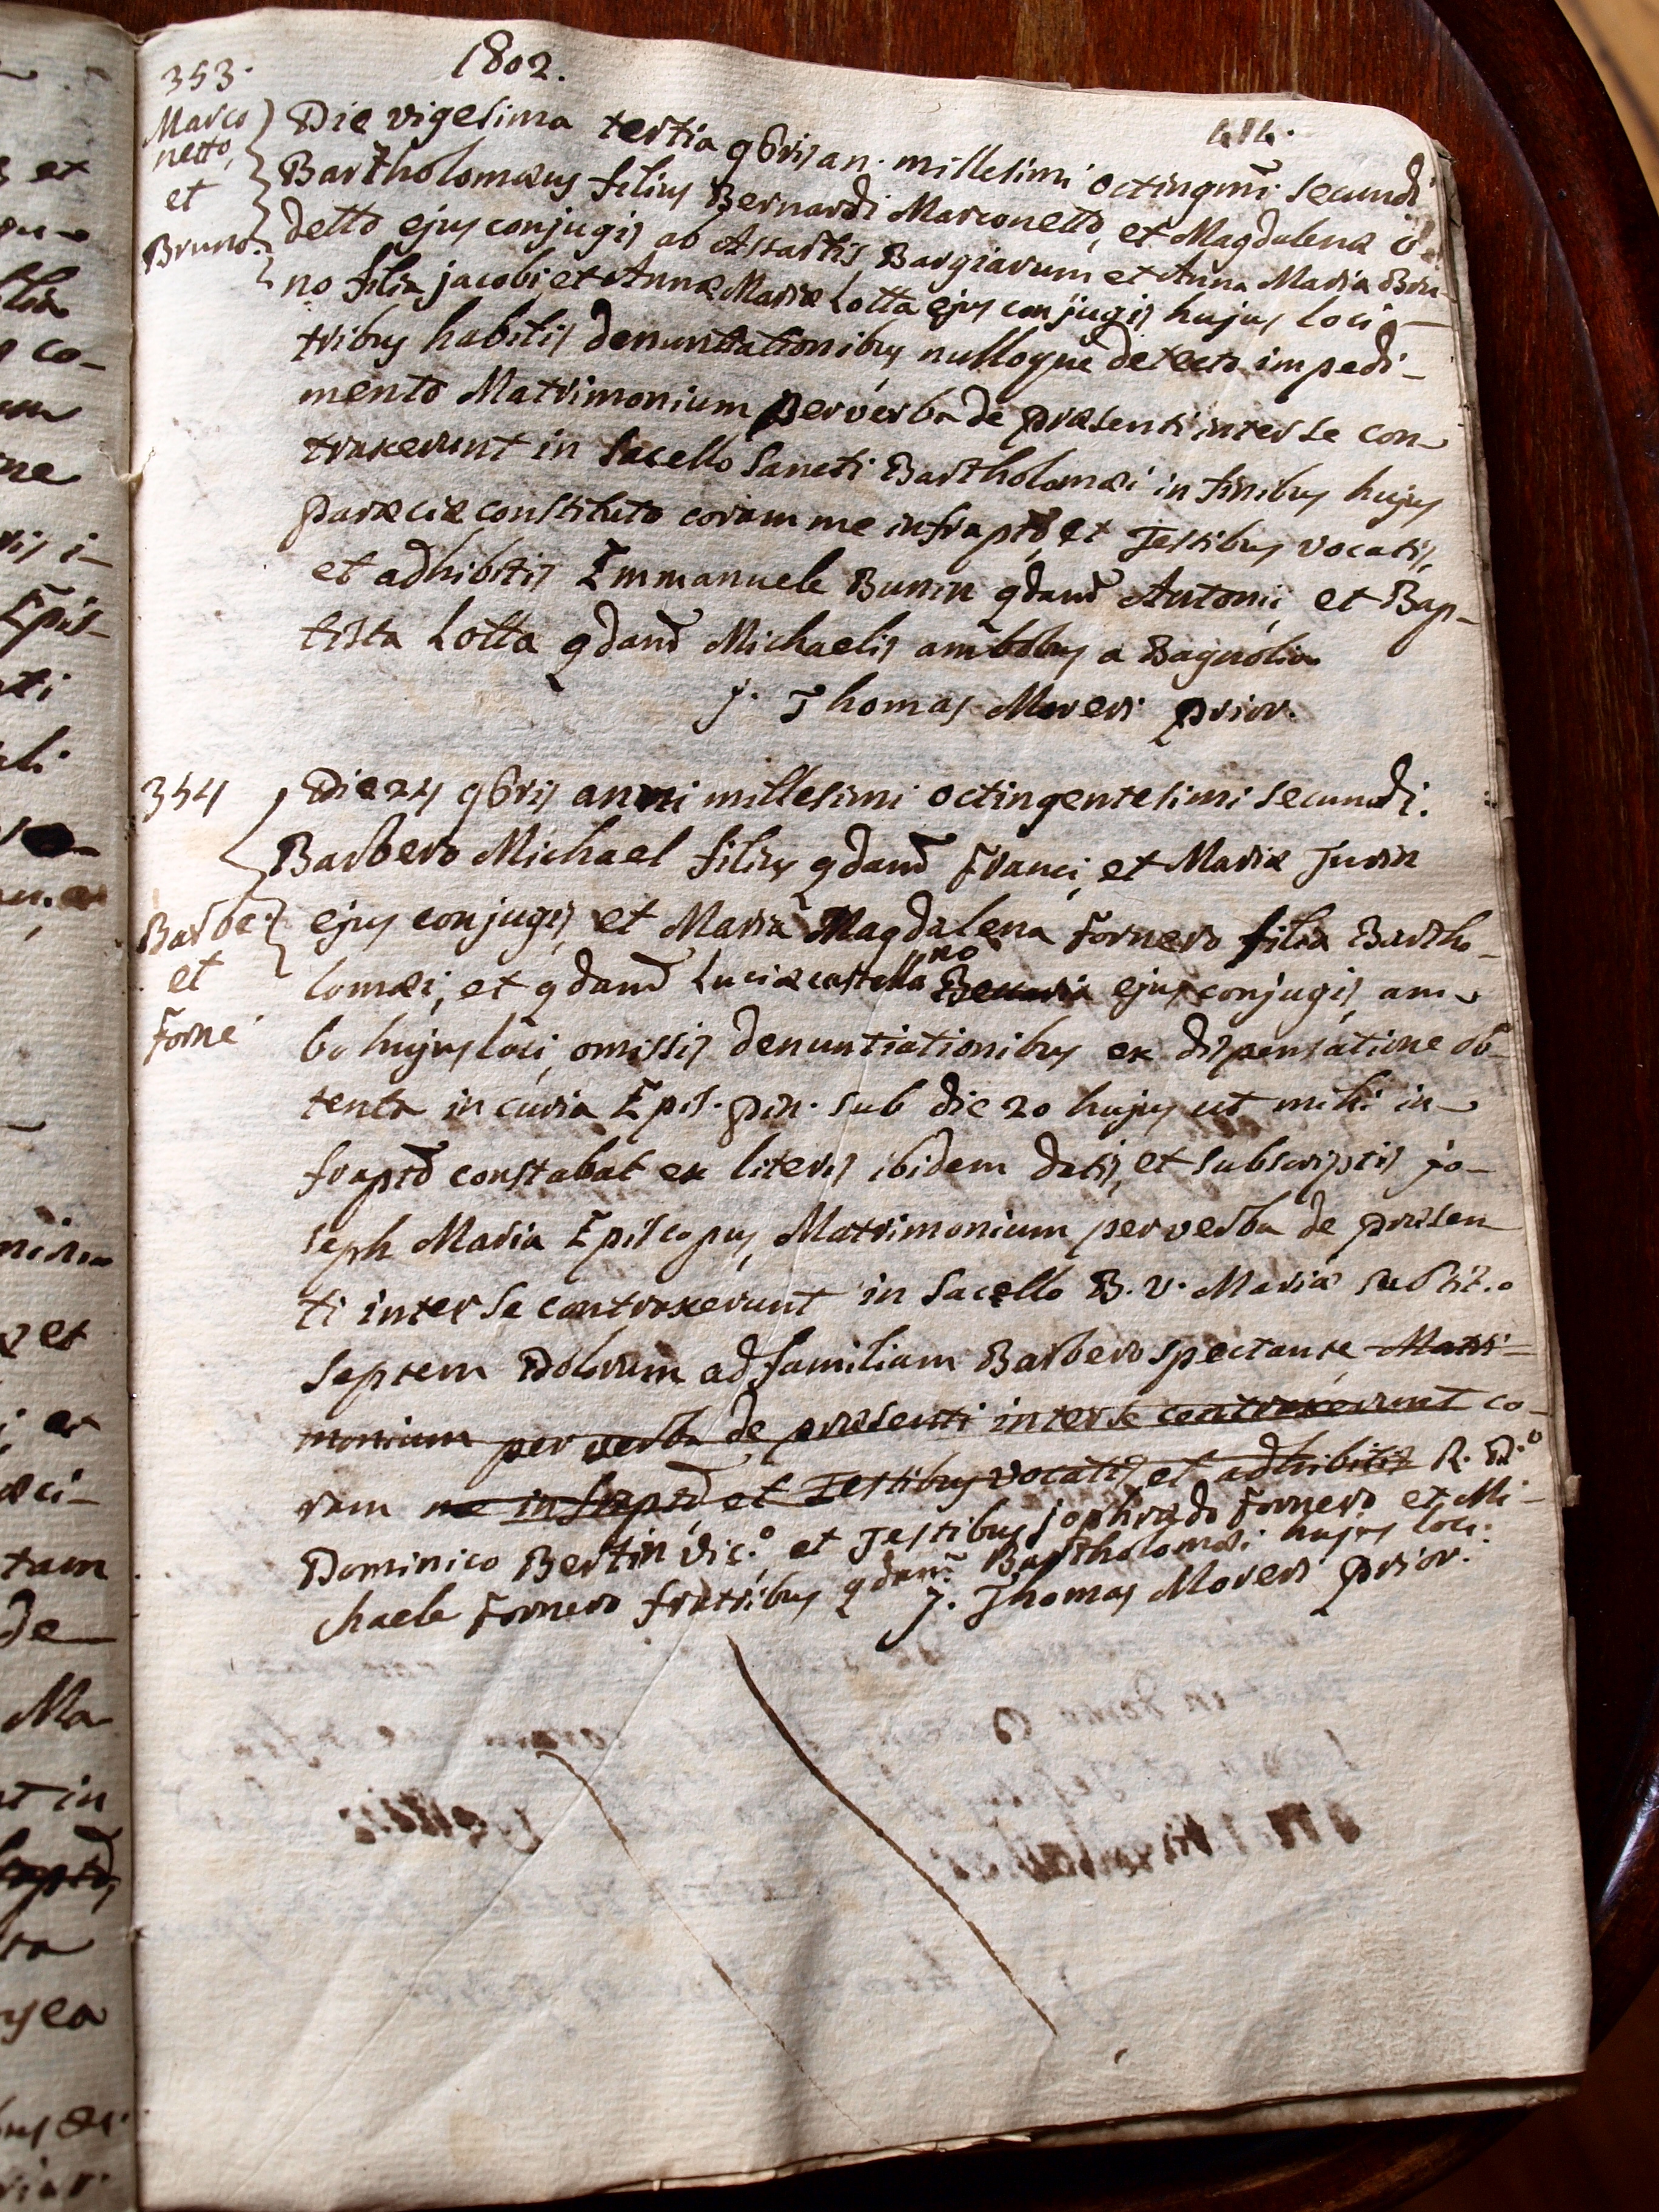 353. 1802.
414.
Marco
netto,
et
Bruno.
Die vigesima tertia 9bris an. millesimi octingmi secundi
Bartholomæus filius Bernardi Marconetto, et Magdalenæ
detto ejus conjugis ab Assartis Bargiarum et Anna Maria Bru-
no filia jacobi, et Annæ Mariæ Lotta ejus conjugis hujus loci
tribus habitis denuntiationibus nulloque detecto impedi-
mento Matrimonium per verba de præsenti inter se con
traxerunt in Sacello Sancti Bartholomæi in finibus hujus
paræciæ constituto coram me infraptō, et Testibus vocatis,
et adhibitis Emmanuele Bunin qdam̄ Antonii, et Bap-
tista Lotta qdam̄ Michaelis ambobus a Bagnolio
J. Thomas Moreri prior.
354
Barbe.
et
Forne
Die 24 9bris anni millesimi octingentesimi secundi.
Barbero Michael filius qdam̄ Franci, et Mariæ Turin
ejus conjugis, et Maria Magdalena Fornero filia Bartho-
lomæi, et qdam̄ Luciæ castellano ejus conjugis, am
bo hujus loci, omissis denuntiationibus ex dispensatione ob-
tenta in curia Epis. pin. sub die 20 hujus ut mihi in
fraptō constabat ex literis ibidem datis, et subscriptis jo-
seph Maria Episcopus, Matrimonium per verba de præsen
ti inter se contraxerunt in Sacello B. V. Mariæ sub tit.o
septem Dolorum ad familiam Barbero spectante, Matri-
monium per verba de præsenti inter se contraxerunt co-
ram me infraptō, et Testibus vocatis, et adhibitis R. D.o
Dominico Bertin vic.o et Testibus fornero et Mi-
chaele Fornero fratribus qdam̄ Bartholomæi hujus loci.
J. Thomas Moreri prior.